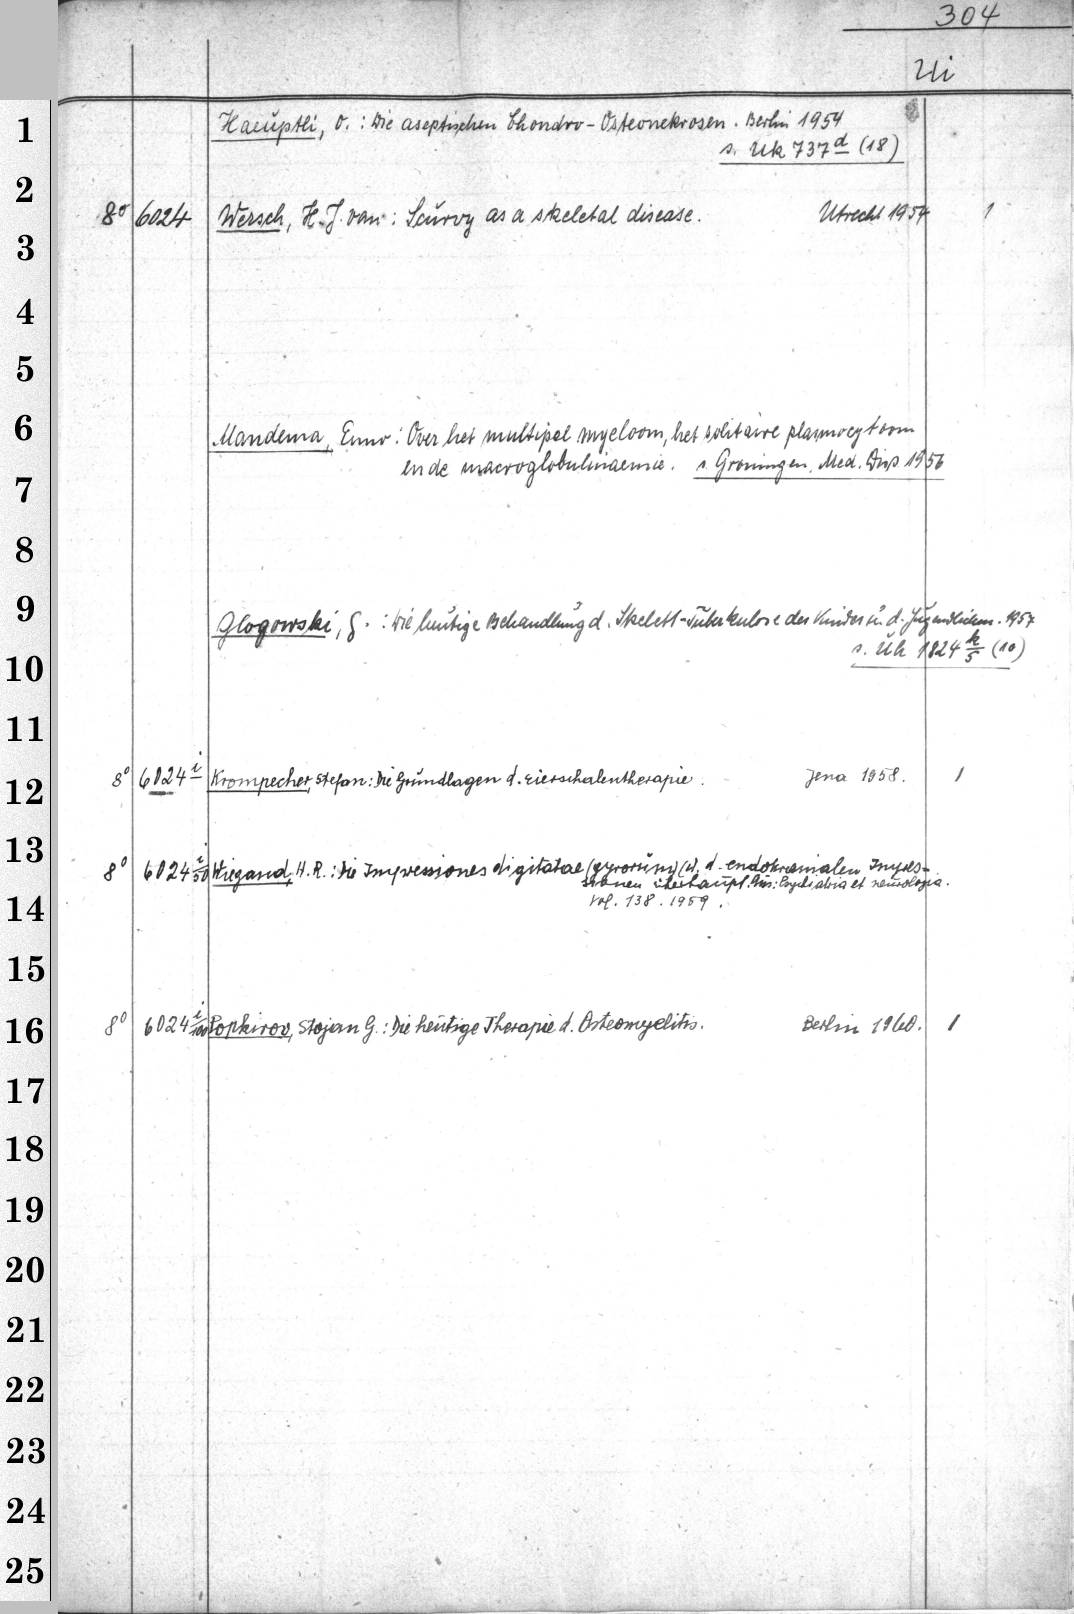 304
Ui
1
Haeuptli, O. : Die aseptischen Chondro-Osteonekrosen. Berlin 1954
s. Uk 737 d (18)
2
8° 6024 Wersch, H. J. van : Scurvy as a skeletal disease. Utrecht 1954 1
3
4
5
6
Mandema, Enno : Over het multipel myeloom, het solitaire plasmocytoom
en de macroglobulinaemie. s. Groningen, Med. Diss 1956
7
8
9
Glogowski, G. : Die heutige Behandlung d. Skelett-Tuberkulose des Kindes u. d. Jugendlichen. 1957
s. Uk 1824 k/5 (10)
10
11
12
8° 6024 i Krompecher, Stefan : Die Grundlagen d. Eierschalentherapie. Jena 1958. 1
13
8° 6024 i/50 Wiegand, H. R. : Die Impressiones digitatae (gyrorum) u. d. endokranialen Impres-
sionen überhaupt. Aus: Psychiatria et neurologia.
Vol. 138. 1959.
14
15
16
8° 6024 i/100 Popkirov, Stojan G. : Die heutige Therapie d. Osteomyelitis. Berlin 1960. 1
17
18
19
20
21
22
23
24
25